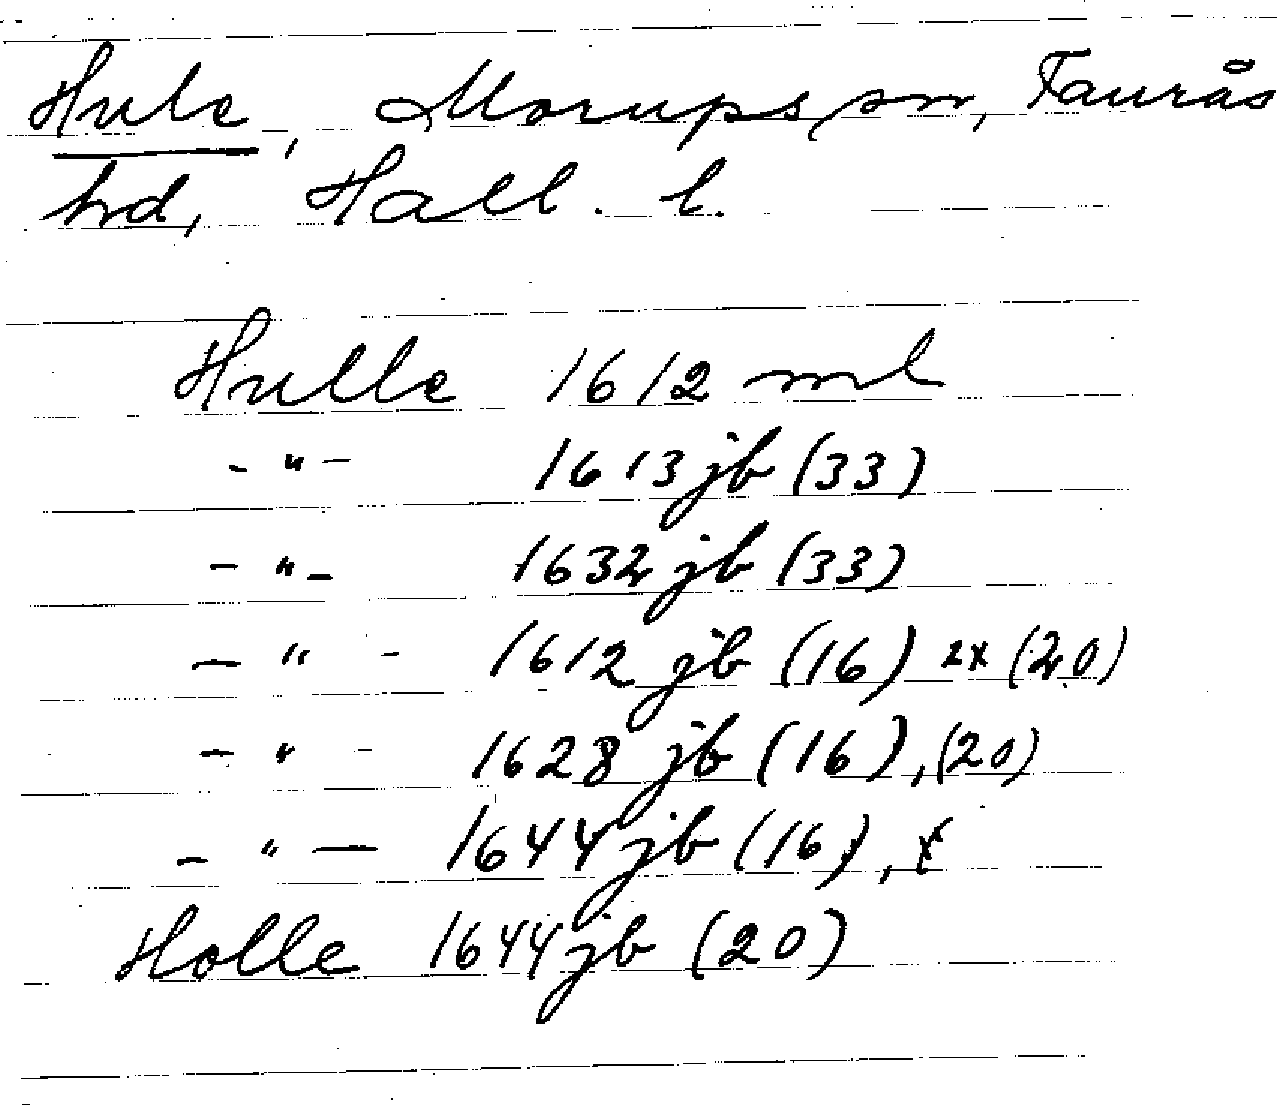 Hule, Morups sn, Faurås
hd, Hall. l.
Hulle 1612 ml
-"- 1613 jb (33)
-"- 1632 jb (33)
-"- 1612 jb (16) 2x (20)
-"- 1628 jb (16), (20)
-"- 1644 jb (16), x
Holle 1644 jb (20)